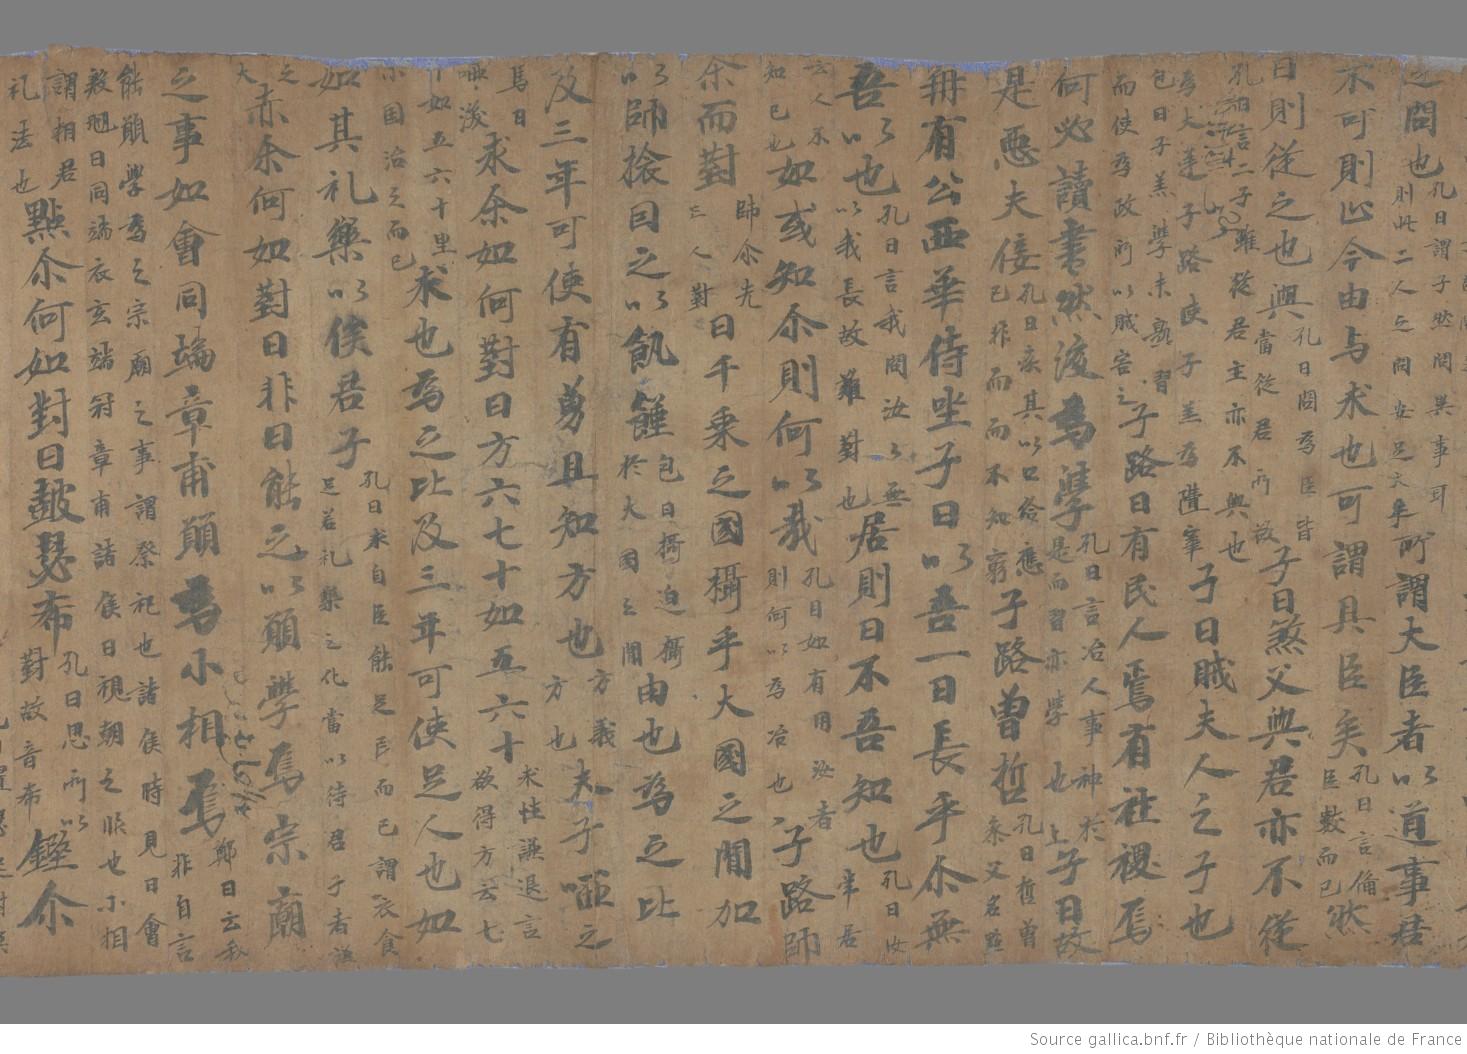 之問也孔曰謂子然問異事耳則此二人之問安足大乎所謂大臣者以道事君
不可則止今由与求也可謂具臣矣孔曰言俻臣數而已然
曰則從之也與孔曰問為臣皆當從君所欲子曰煞父與君亦不從
孔曰言二子雖從君主亦不與也為大逆子路使子羔為費宰子曰賊夫人之子也
包曰子羔學未熟習而使為政所以賊害之子路曰有民人焉有社稷焉
何必讀書然後為學孔曰言治人事神於是而習亦學也子曰故
是惡夫佞孔曰疾其以口給應已非而而不知窮子路曾晳孔曰晳曾參父名點
冉有公西華侍坐子曰以吾一日長乎尒無
吾以也孔曰言我問汝汝無以我長故難對也居則曰不吾知也孔曰汝常居
云人不知己也如或知尒則何以哉孔曰如有用汝者則何以為治也子路師
尒而對師尒先三人對曰千乘之國攝乎大國之間加
以師捨因之以飢饉包曰攝迫攝於大國之間由也為之比
及三年可使有勇且知方也方義方也夫子哂之
馬曰哂求尒如何對曰方六七十如五六十求性謙退言欲得方云七
十如五六十里小国治之而已求也為之比及三年可使足人也如
如其礼樂以俟君子孔曰求自臣能足民而已謂衣食足若礼樂之化當以待君子者謙
之大赤尒何如對曰非曰能之以願學焉宗廟
之事如會同端章甫願為小相焉鄭曰云我非自言
能願學為之宗廟之事謂祭祀也諸侯時見曰會殷覜曰同端衣玄端冠章甫諸侯曰視朝之服也小相
謂相君礼法也點尒何如對曰鼓瑟希孔曰思所以對故音希鏗尒